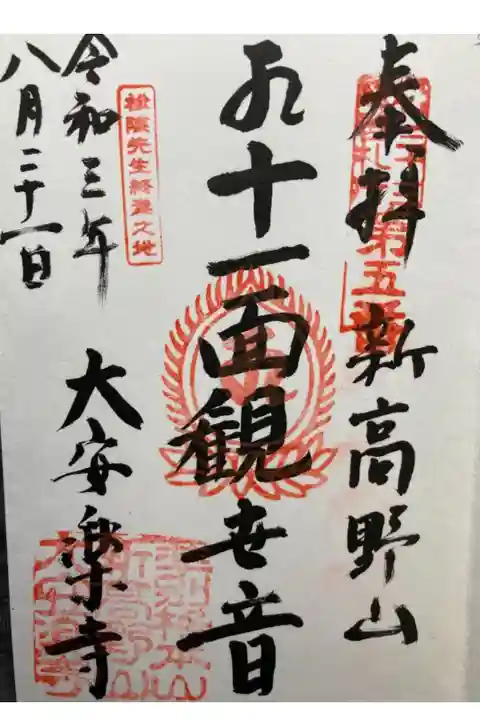 奉拝 新高野山
第五番
十一面観世音
大安楽寺
松陰先生終焉之地
令和三年
八月二十一日